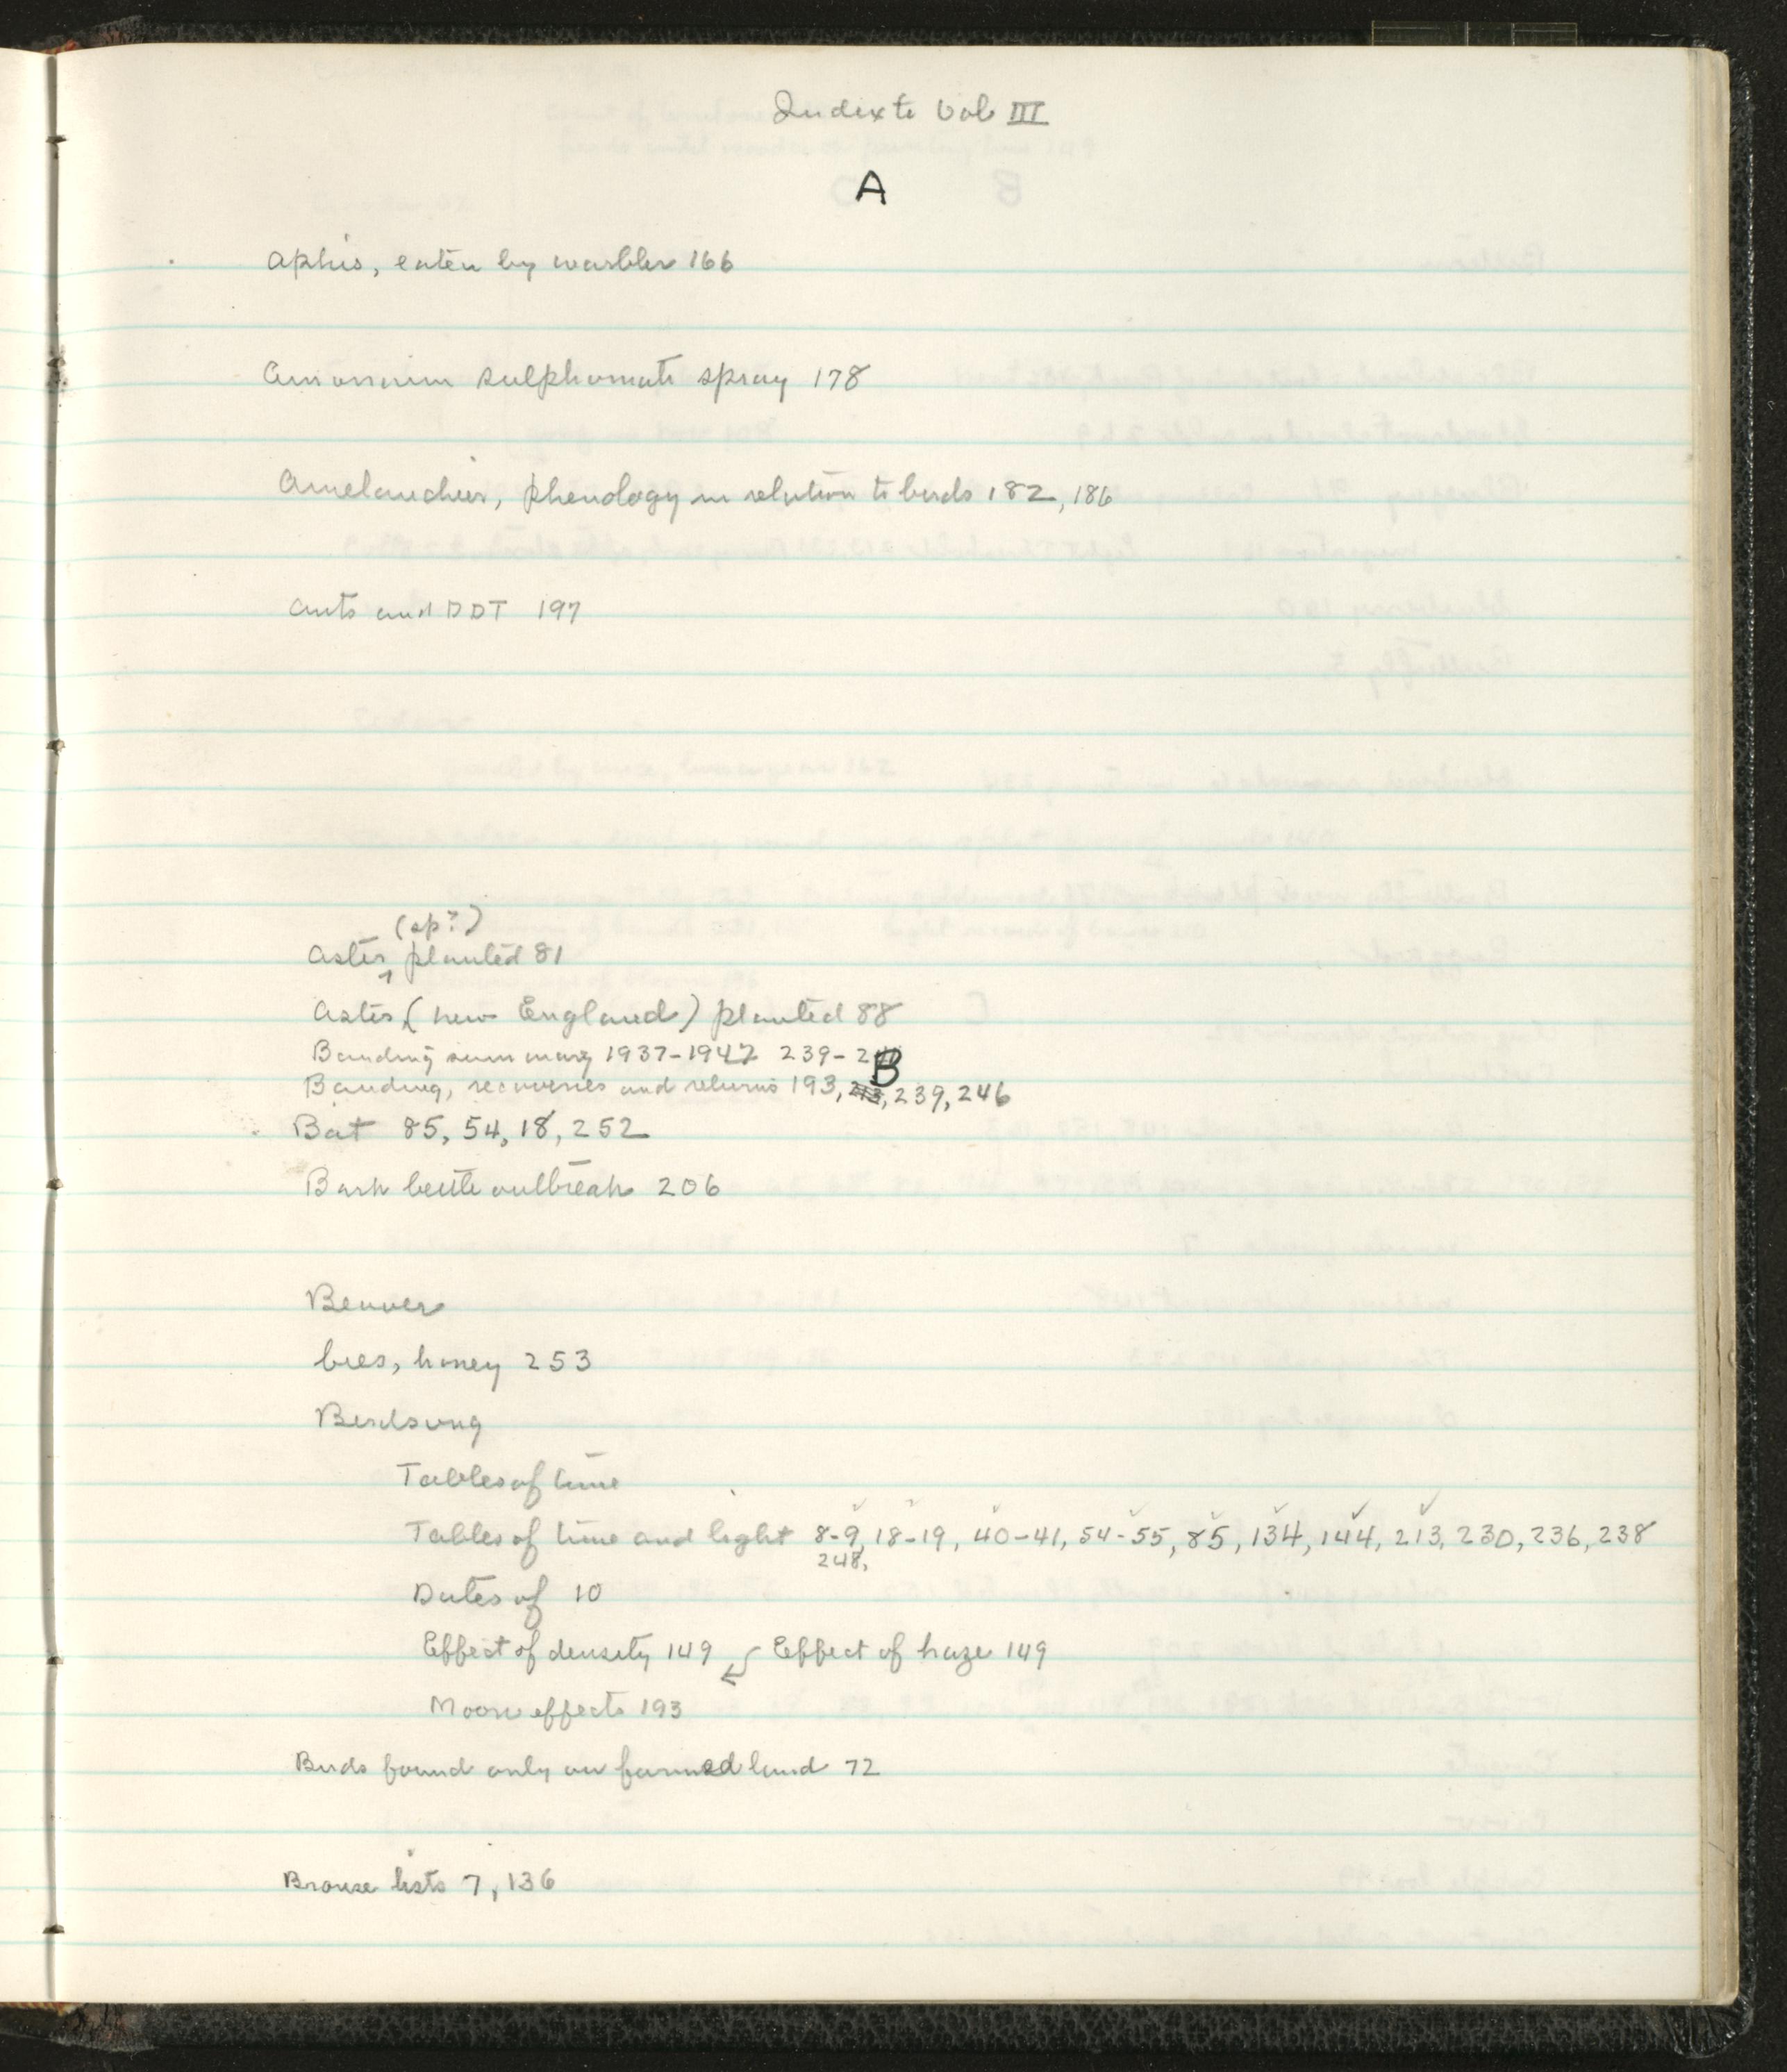 Index to Vol III
A
Aphis, eaten by warbler 166
Ammonium sulphamate spray 178
Amelanchier, phenology in relation to birds 182, 186
Ants and DDT 197
(sp?)
Aster, planted 81
Aster (New England) planted 88
Banding summary 1937-1947 239-
B
Banding, recoveries and returns 193, 213, 239, 246
Bat 85, 54, 18, 252
Bark beetle outbreak 206
Beaver
bees, honey 253
Birdsong
Tables of time
Tables of time and light 8-9, 18-19, 40-41, 54-55, 85, 134, 144, 213, 230, 236, 238
248,
Dates of 10
Effect of density 149 Effect of haze 149
Moon effects 193
Birds found only on farmed land 72
Browse lists 7, 136